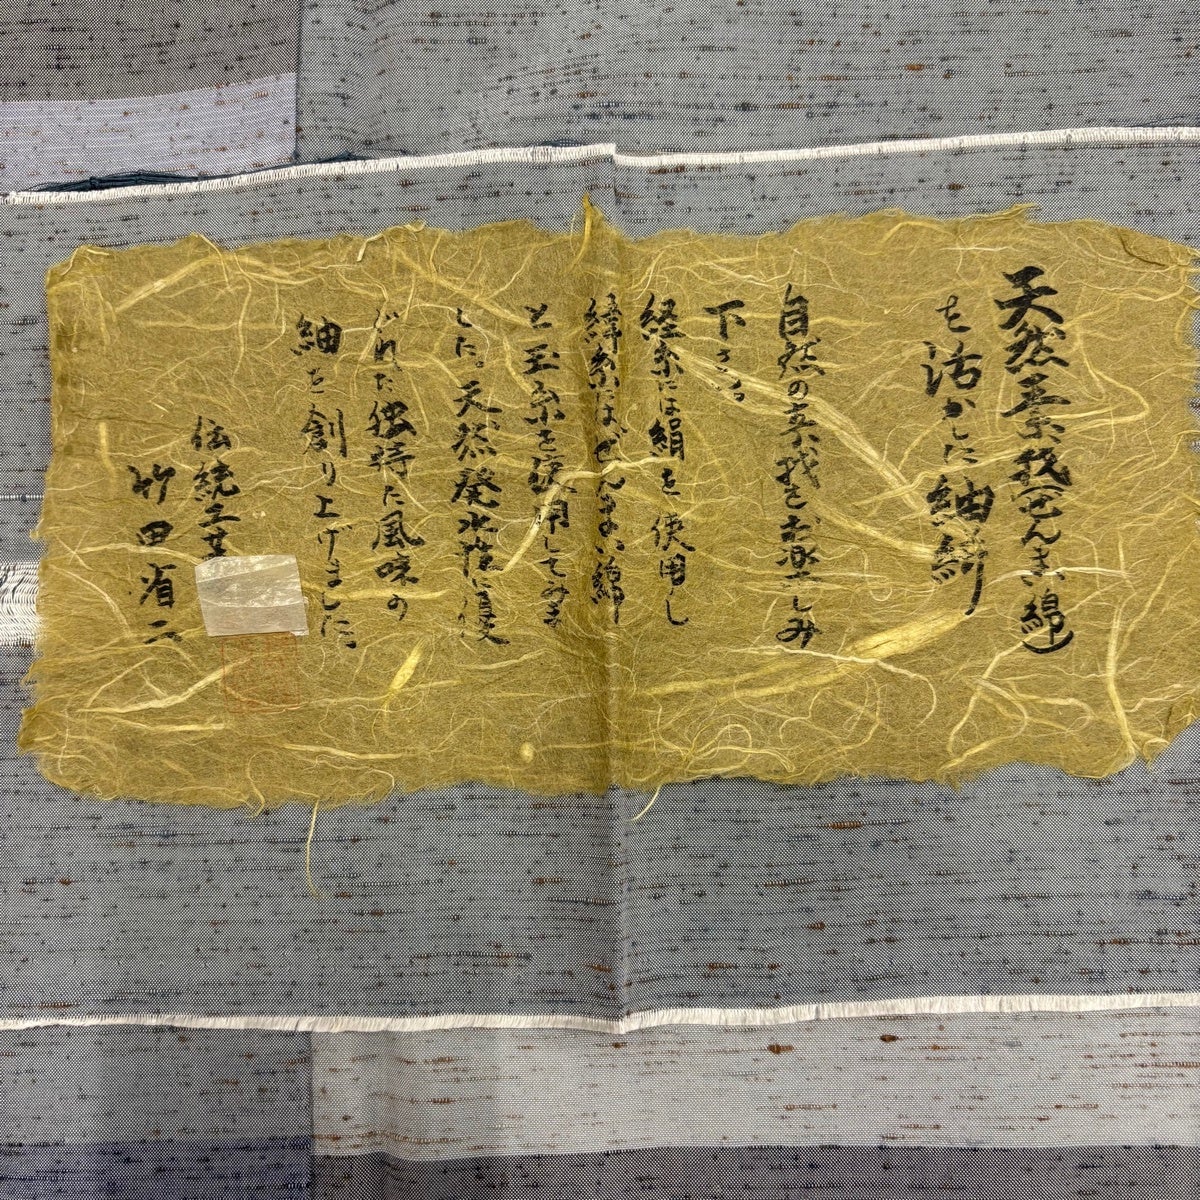 天然玉糸、我(ぜんまい綿)
を活かした紬絣
自然の素我をお楽しみ
下さい。
経糸には絹を使用し
緯糸にはぜんまい綿
と玉糸を使用してみま
した。天然発水性に優
どれた独特な風味の
紬を創り上げました。
伝統工芸
竹田省二